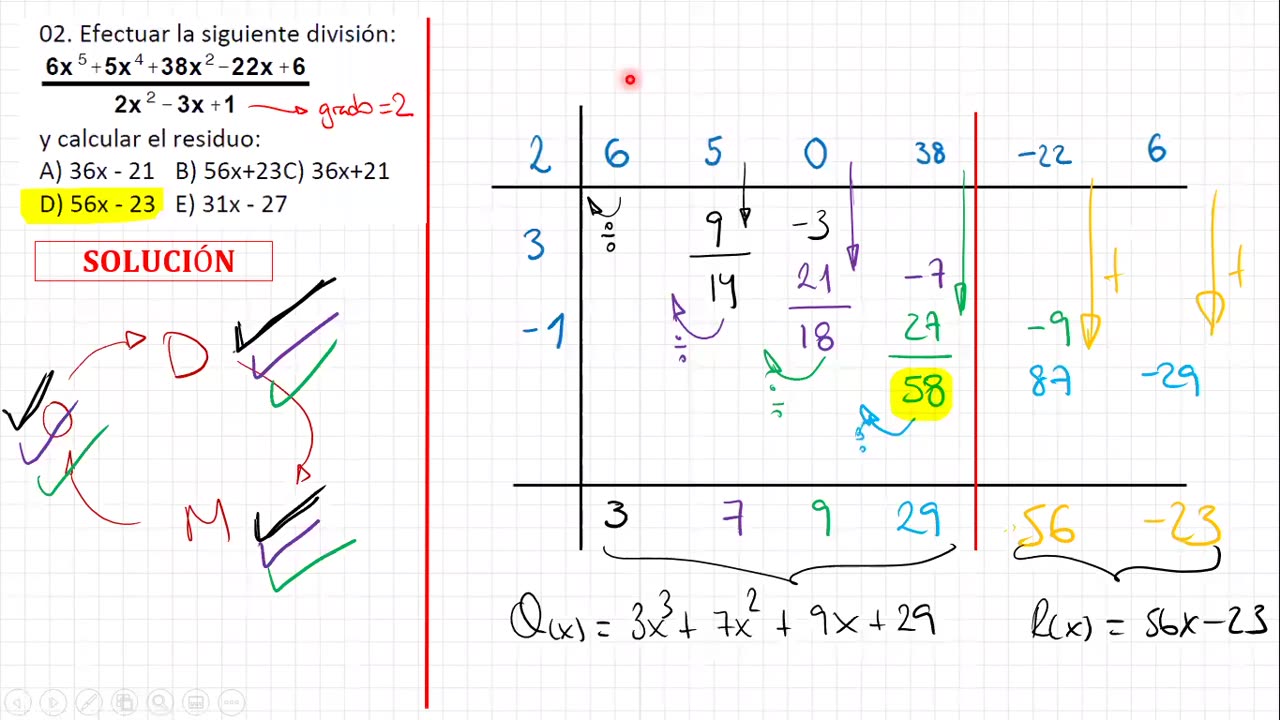 02. Efectuar la siguiente división:
6x⁵+5x⁴+38x²-22x+6
2x²-3x+1 → grado=2
y calcular el residuo:
A) 36x - 21 B) 56x+23C) 36x+21
D) 56x - 23 E) 31x - 27
SOLUCIÓN
D
O
M
2 6 5 0 38 -22 6
3 ÷ 9 -3
14 21 -7 +  +
-1 ÷ 18 27 -9
÷ 58 87 -29
÷
3 7 9 29 56 -23
Q(x) = 3x³ + 7x² + 9x + 29 R(x) = 56x - 23